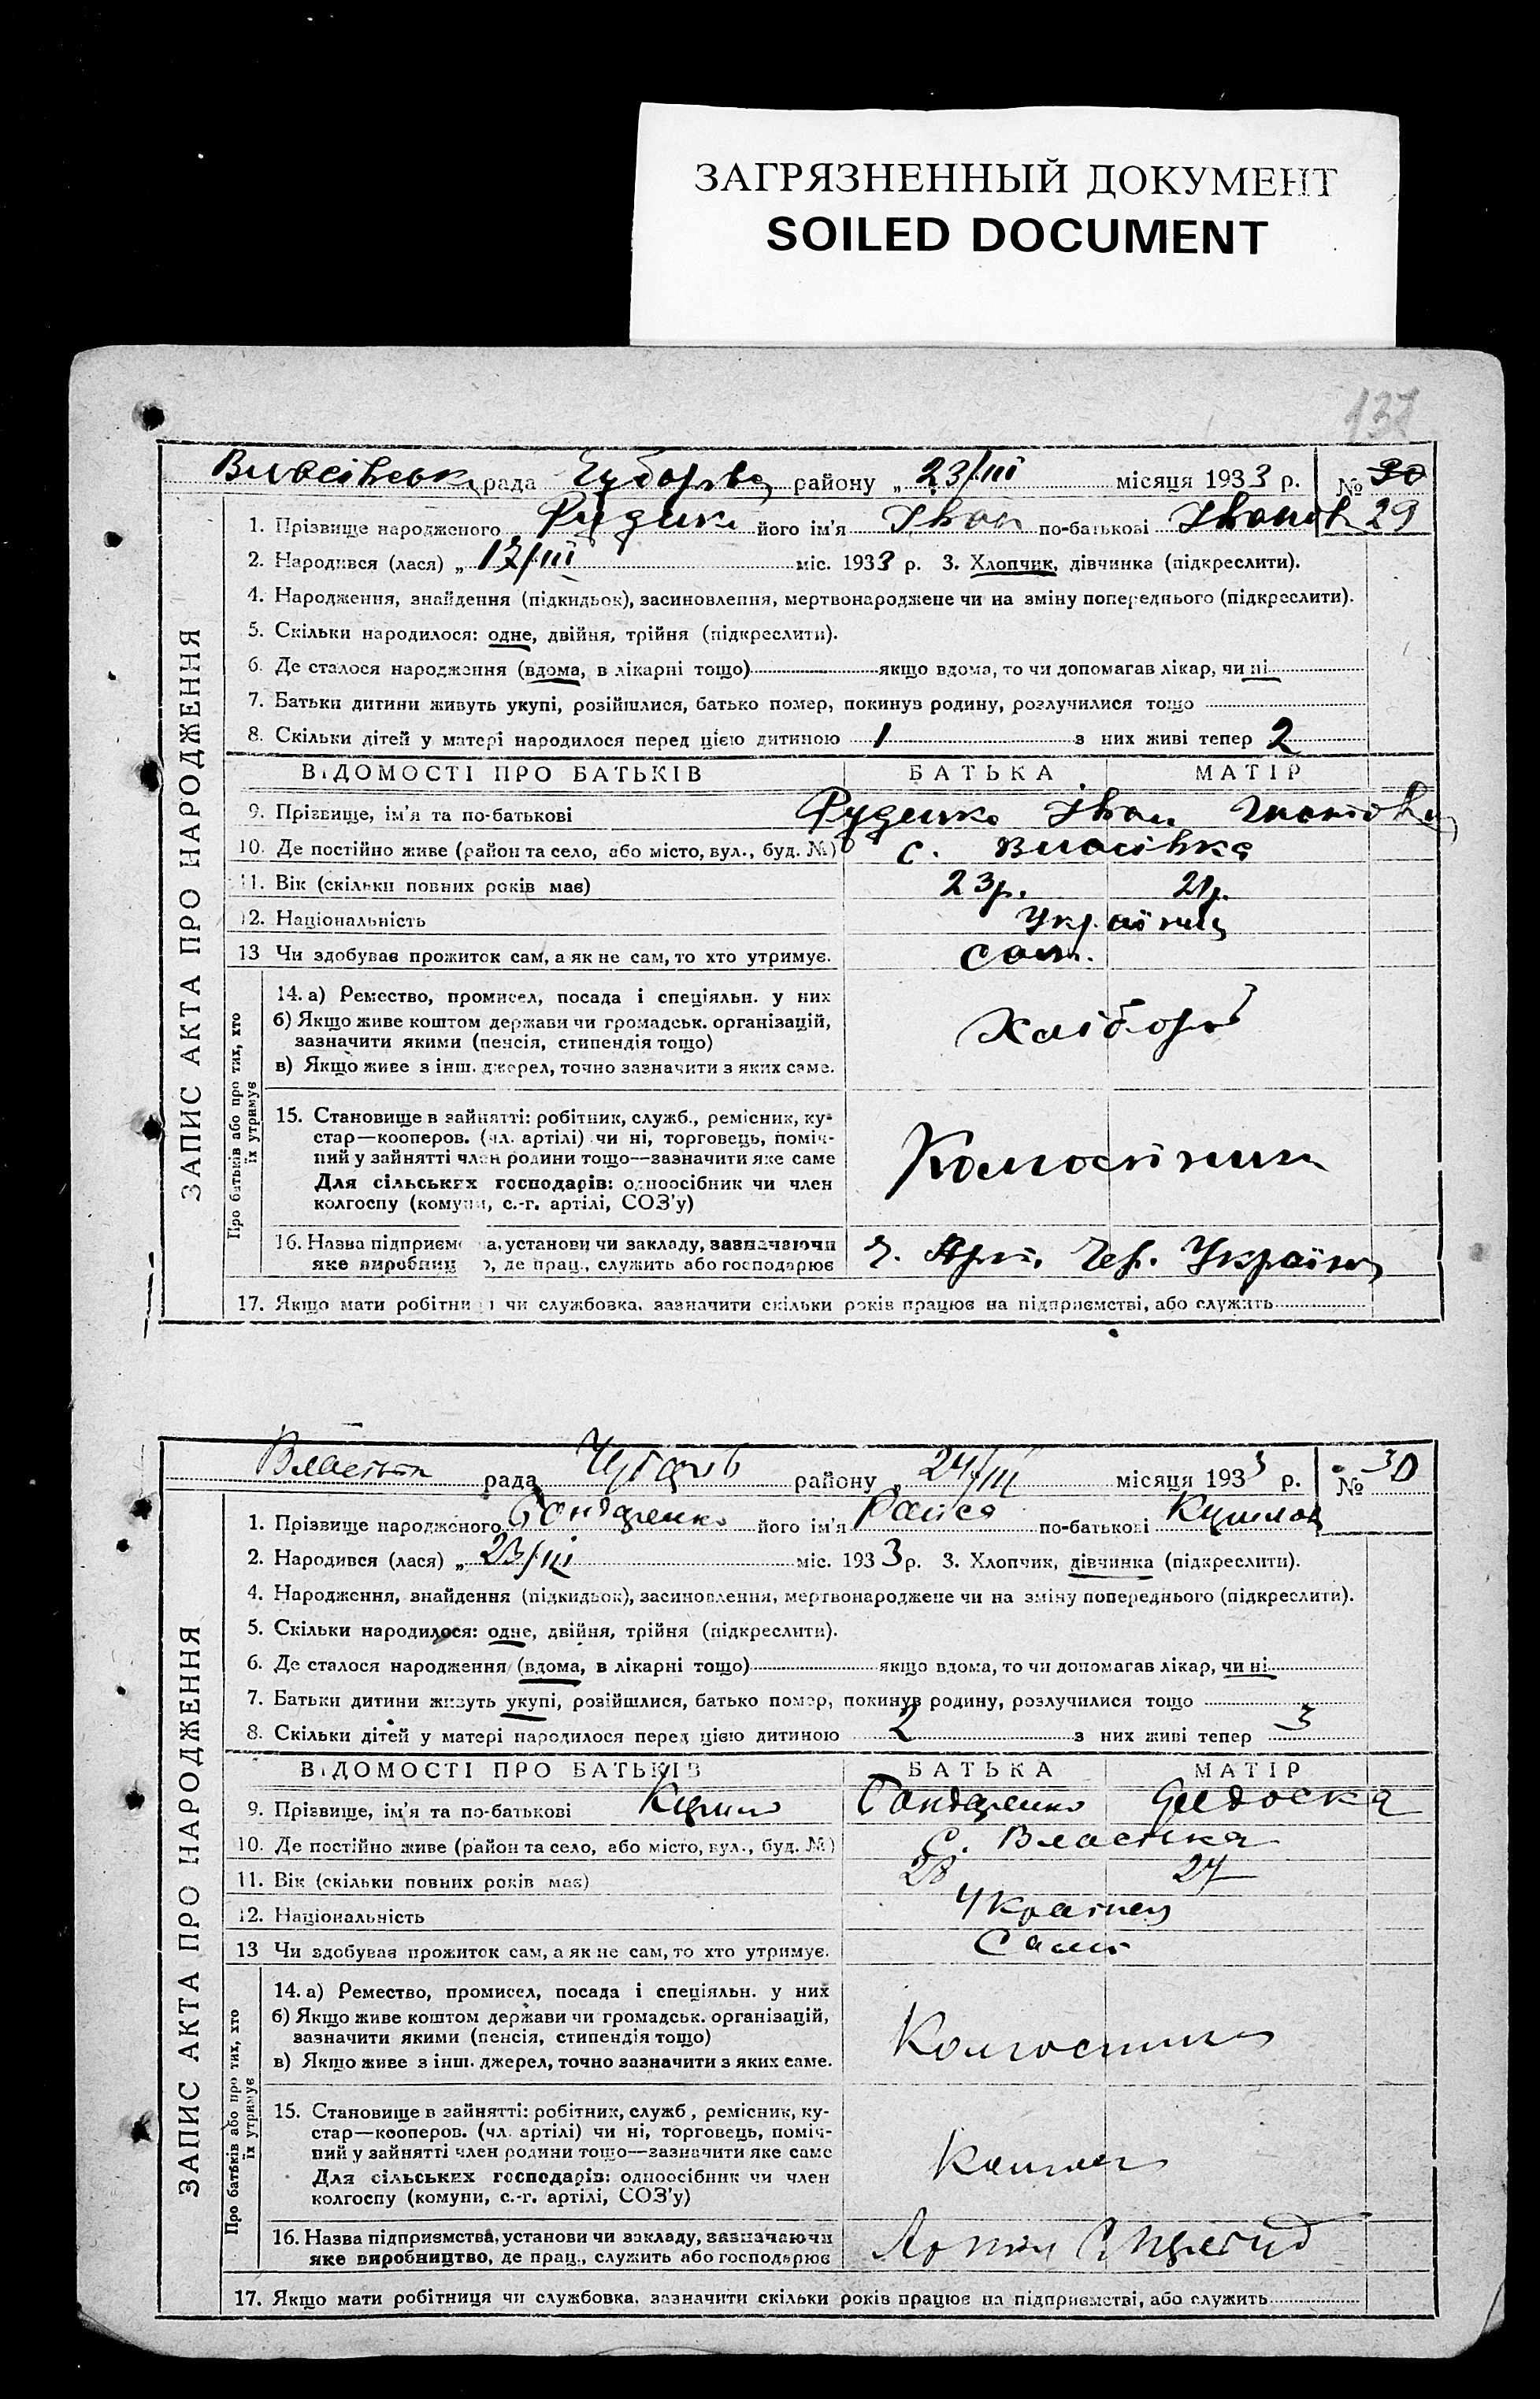 ЗАГРЯЗНЕННЫЙ ДОКУМЕНТ
SOILED DOCUMENT
137
рада району „ 23/III місяця 1933 р. № 30
1. Прізвище народженого його ім'я Іван по-батькові Іванов 29
2. Народився (лася) „ 12/III міс. 1933 р. 3. Хлопчик, дівчинка (підкреслити).
4. Народження, знайдення (підкидьок), засиновлення, мертвонароджене чи на зміну попереднього (підкреслити).
5. Скільки народилося: одне, двійня, трійня (підкреслити).
6. Де сталося народження (вдома, в лікарні тощо) якщо вдома, то чи допомагав лікар, чи ні
7. Батьки дитини живуть укупі, розійшлися, батько помер, покинув родину, розлучилися тощо
8. Скільки дітей у матері народилося перед цією дитиною 1 з них живі тепер 2
ВІДОМОСТІ ПРО БАТЬКІВ БАТЬКА МАТІР
9. Прізвище, ім'я та по-батькові Руденко Іван
10. Де постійно живе (район та село, або місто, вул., буд. №) с. Власівка
11. Вік (скільки повних років має) 23р. 21р.
12. Національність Україниц
13 Чи здобуває прожиток сам, а як не сам, то хто утримує. сам.
14. а) Ремество, промисел, посада і спеціяльн. у них
б) Якщо живе коштом держави чи громадськ. організацій,
зазначити якими (пенсія, стипендія тощо)
в) Якщо живе з інш. джерел, точно зазначити з яких саме.
Хлібороб
15. Становище в зайнятті: робітник, служб., ремісник, ку-
стар—кооперов. (чл. артілі) чи ні, торговець, поміч-
ний у зайнятті член родини тощо—зазначити яке саме
Для сільських господарів: одноосібник чи член
колгоспу (комуни, с.-г. артілі, СОЗ'у)
16. Назва підприємства, установи чи закладу, зазначаючи
яке виробництво, де прац., служить або господарює
Арт. Чер. Україна
17. Якщо мати робітниця чи службовка, зазначити скільки років працює на підприємстві, або служить
ЗАПИС АКТА ПРО НАРОДЖЕННЯ
Про батьків або про тих, хто
їх утримує
рада району „ 24/III місяця 1933 р. № 30
1. Прізвище народженого його ім'я Раїса по-батькові
2. Народився (лася) „ 23/III міс. 1933 р. 3. Хлопчик, дівчинка (підкреслити).
4. Народження, знайдення (підкидьок), засиновлення, мертвонароджене чи на зміну попереднього (підкреслити).
5. Скільки народилося: одне, двійня, трійня (підкреслити).
6. Де сталося народження (вдома, в лікарні тощо) якщо вдома, то чи допомагав лікар, чи ні
7. Батьки дитини живуть укупі, розійшлися, батько помер, покинув родину, розлучилися тощо
8. Скільки дітей у матері народилося перед цією дитиною 2 з них живі тепер 3
ВІДОМОСТІ ПРО БАТЬКІВ БАТЬКА МАТІР
9. Прізвище, ім'я та по-батькові
10. Де постійно живе (район та село, або місто, вул., буд. №) с. Власівка
11. Вік (скільки повних років має) 28 27
12. Національність Українец
13 Чи здобуває прожиток сам, а як не сам, то хто утримує. Сам
14. а) Ремество, промисел, посада і спеціяльн. у них
б) Якщо живе коштом держави чи громадськ. організацій,
зазначити якими (пенсія, стипендія тощо)
в) Якщо живе з інш. джерел, точно зазначити з яких саме.
15. Становище в зайнятті: робітник, служб., ремісник, ку-
стар—кооперов. (чл. артілі) чи ні, торговець, поміч-
ний у зайнятті член родини тощо—зазначити яке саме
Для сільських господарів: одноосібник чи член
колгоспу (комуни, с.-г. артілі, СОЗ'у)
16. Назва підприємства, установи чи закладу, зазначаючи
яке виробництво, де прац., служить або господарює
17. Якщо мати робітниця чи службовка, зазначити скільки років працює на підприємстві, або служить
ЗАПИС АКТА ПРО НАРОДЖЕННЯ
Про батьків або про тих, хто
їх утримує